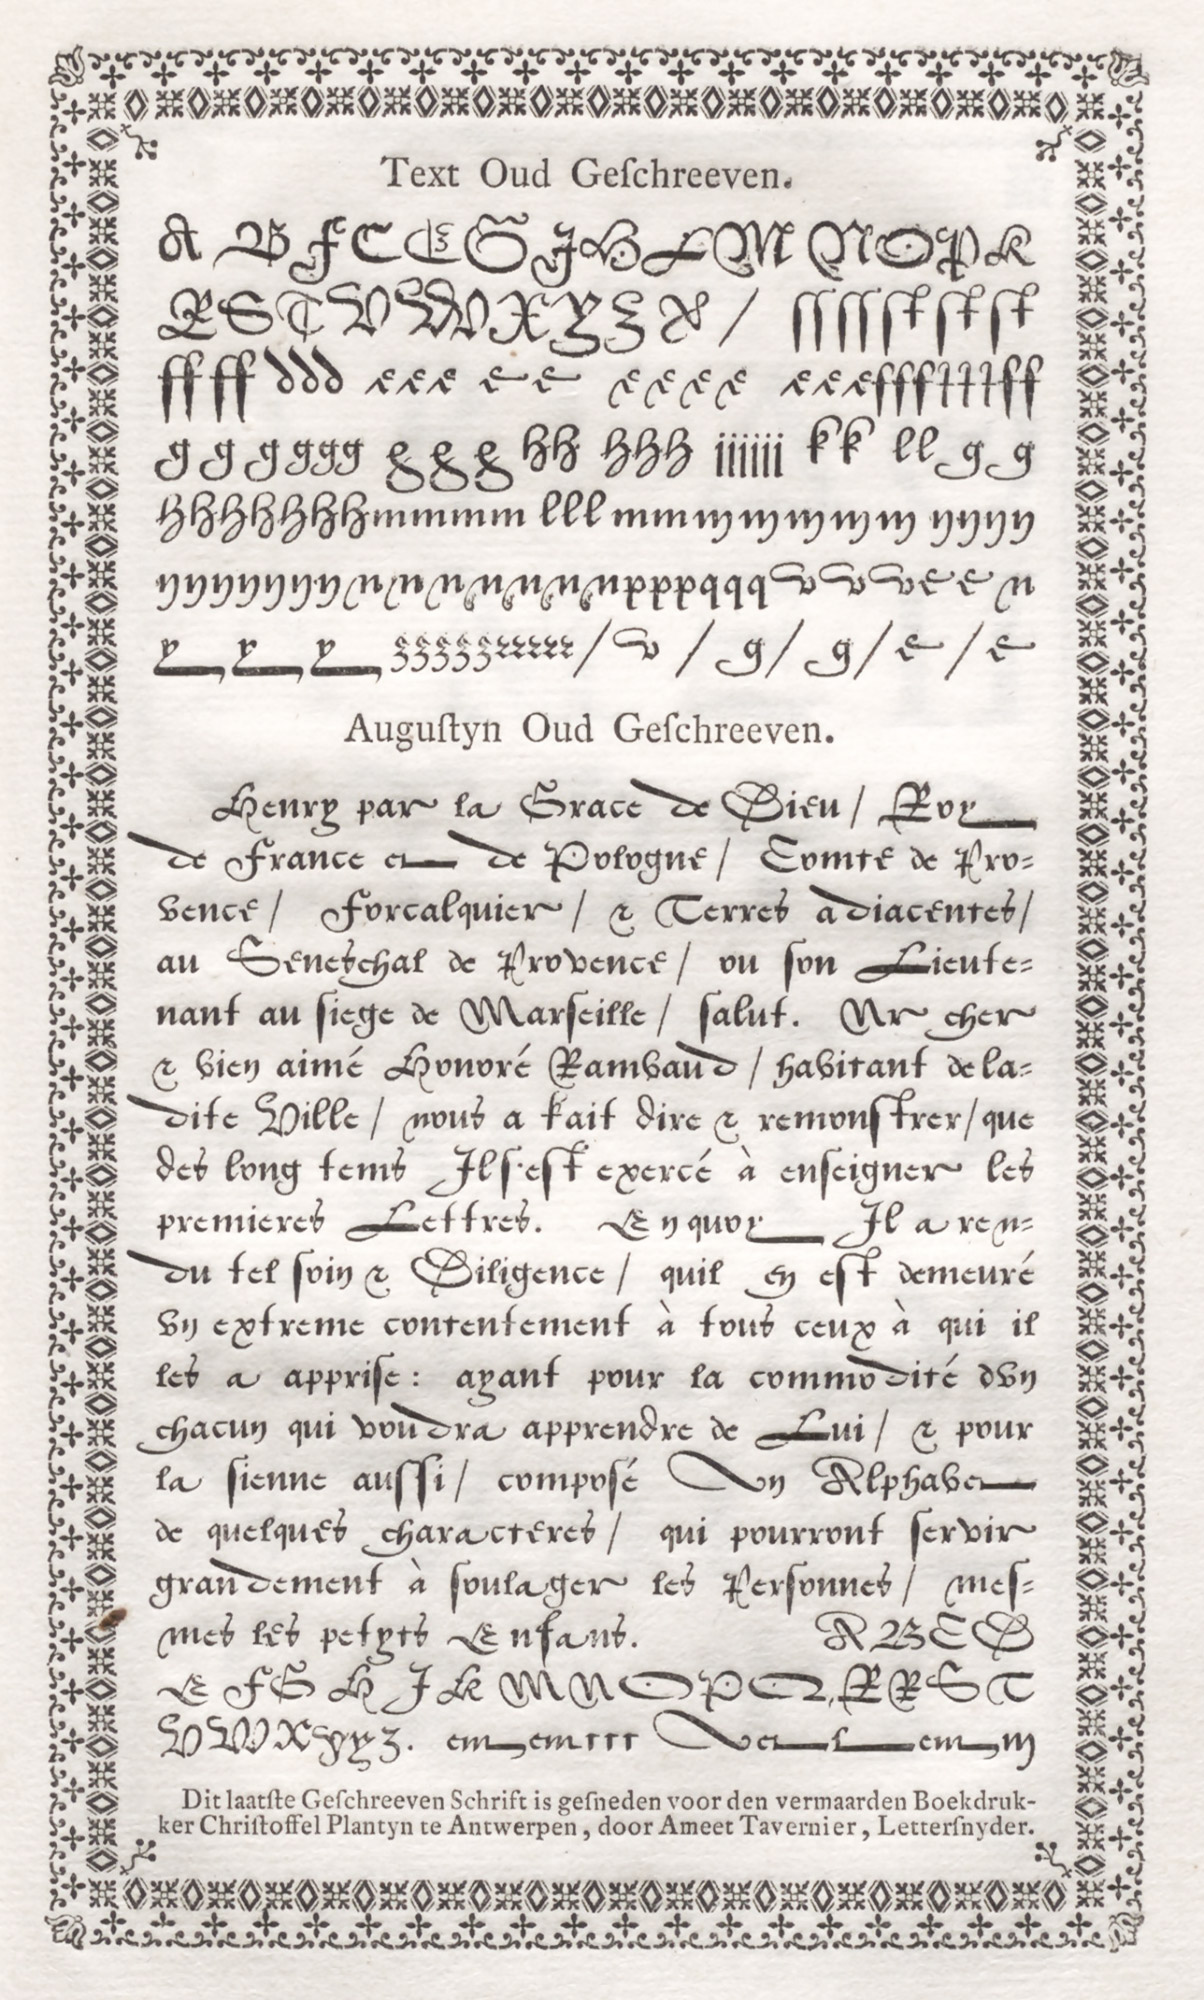 Text Oud Geſchreeven.
A B F C E G J H L M N O P K
R S T V W X Y Z X / ſſſſſt ſt ſt
ff ff ddd eee ee eeee eeefffffffff
g g gggg ggg hh hhh iiiiii kk ll g g
hhhhhhhmmmm lll mmmmmmm nnnn
nnnnnnnnnnnnnnnpppqqqvvvee n
y y y zzzzzrrrrr / v / g / g / e / e
Auguſtyn Oud Geſchreeven.
Henry par la Grace de Dieu / Roy
de France et de Pologne / Comte de Pro-
vence / Forcalquier / & Terres adiacentes /
au Seneschal de Provence / ou ſon Lieute-
nant au ſiege de Marſeille / ſalut. Nr cher
& bien aimé Honoré Rambaud / habitant de la-
dite Ville / nous a fait dire & remonſtrer / que
des long tems Il s'eſt exercé à enſeigner les
premieres Lettres. En quoy Il a ren-
du tel ſoin & Diligence / quil en eſt demeuré
vn extreme contentement à tous ceux à qui il
les a appriſe : ayant pour la commodité dvn
chacun qui voudra apprendre de Lui / & pour
la ſienne auſſi / compoſé Vn Alphabet
de quelques characteres / qui pourront ſervir
grandement à ſoulager les Perſonnes / meſ-
mes les petyts Enfans. A B C D
E F G H J K M N O P Q R R S T
V W X Y y z. em em ttt V et s em m
Dit laatſte Geſchreeven Schrift is geſneden voor den vermaarden Boekdruk-
ker Chriſtoffel Plantyn te Antwerpen, door Ameet Tavernier, Letterſnyder.